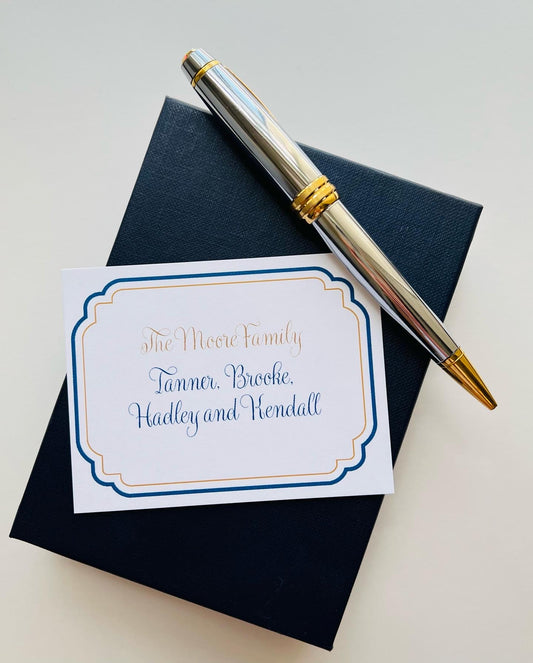 The Moore Family
Tanner, Brooke,
Hadley and Kendall